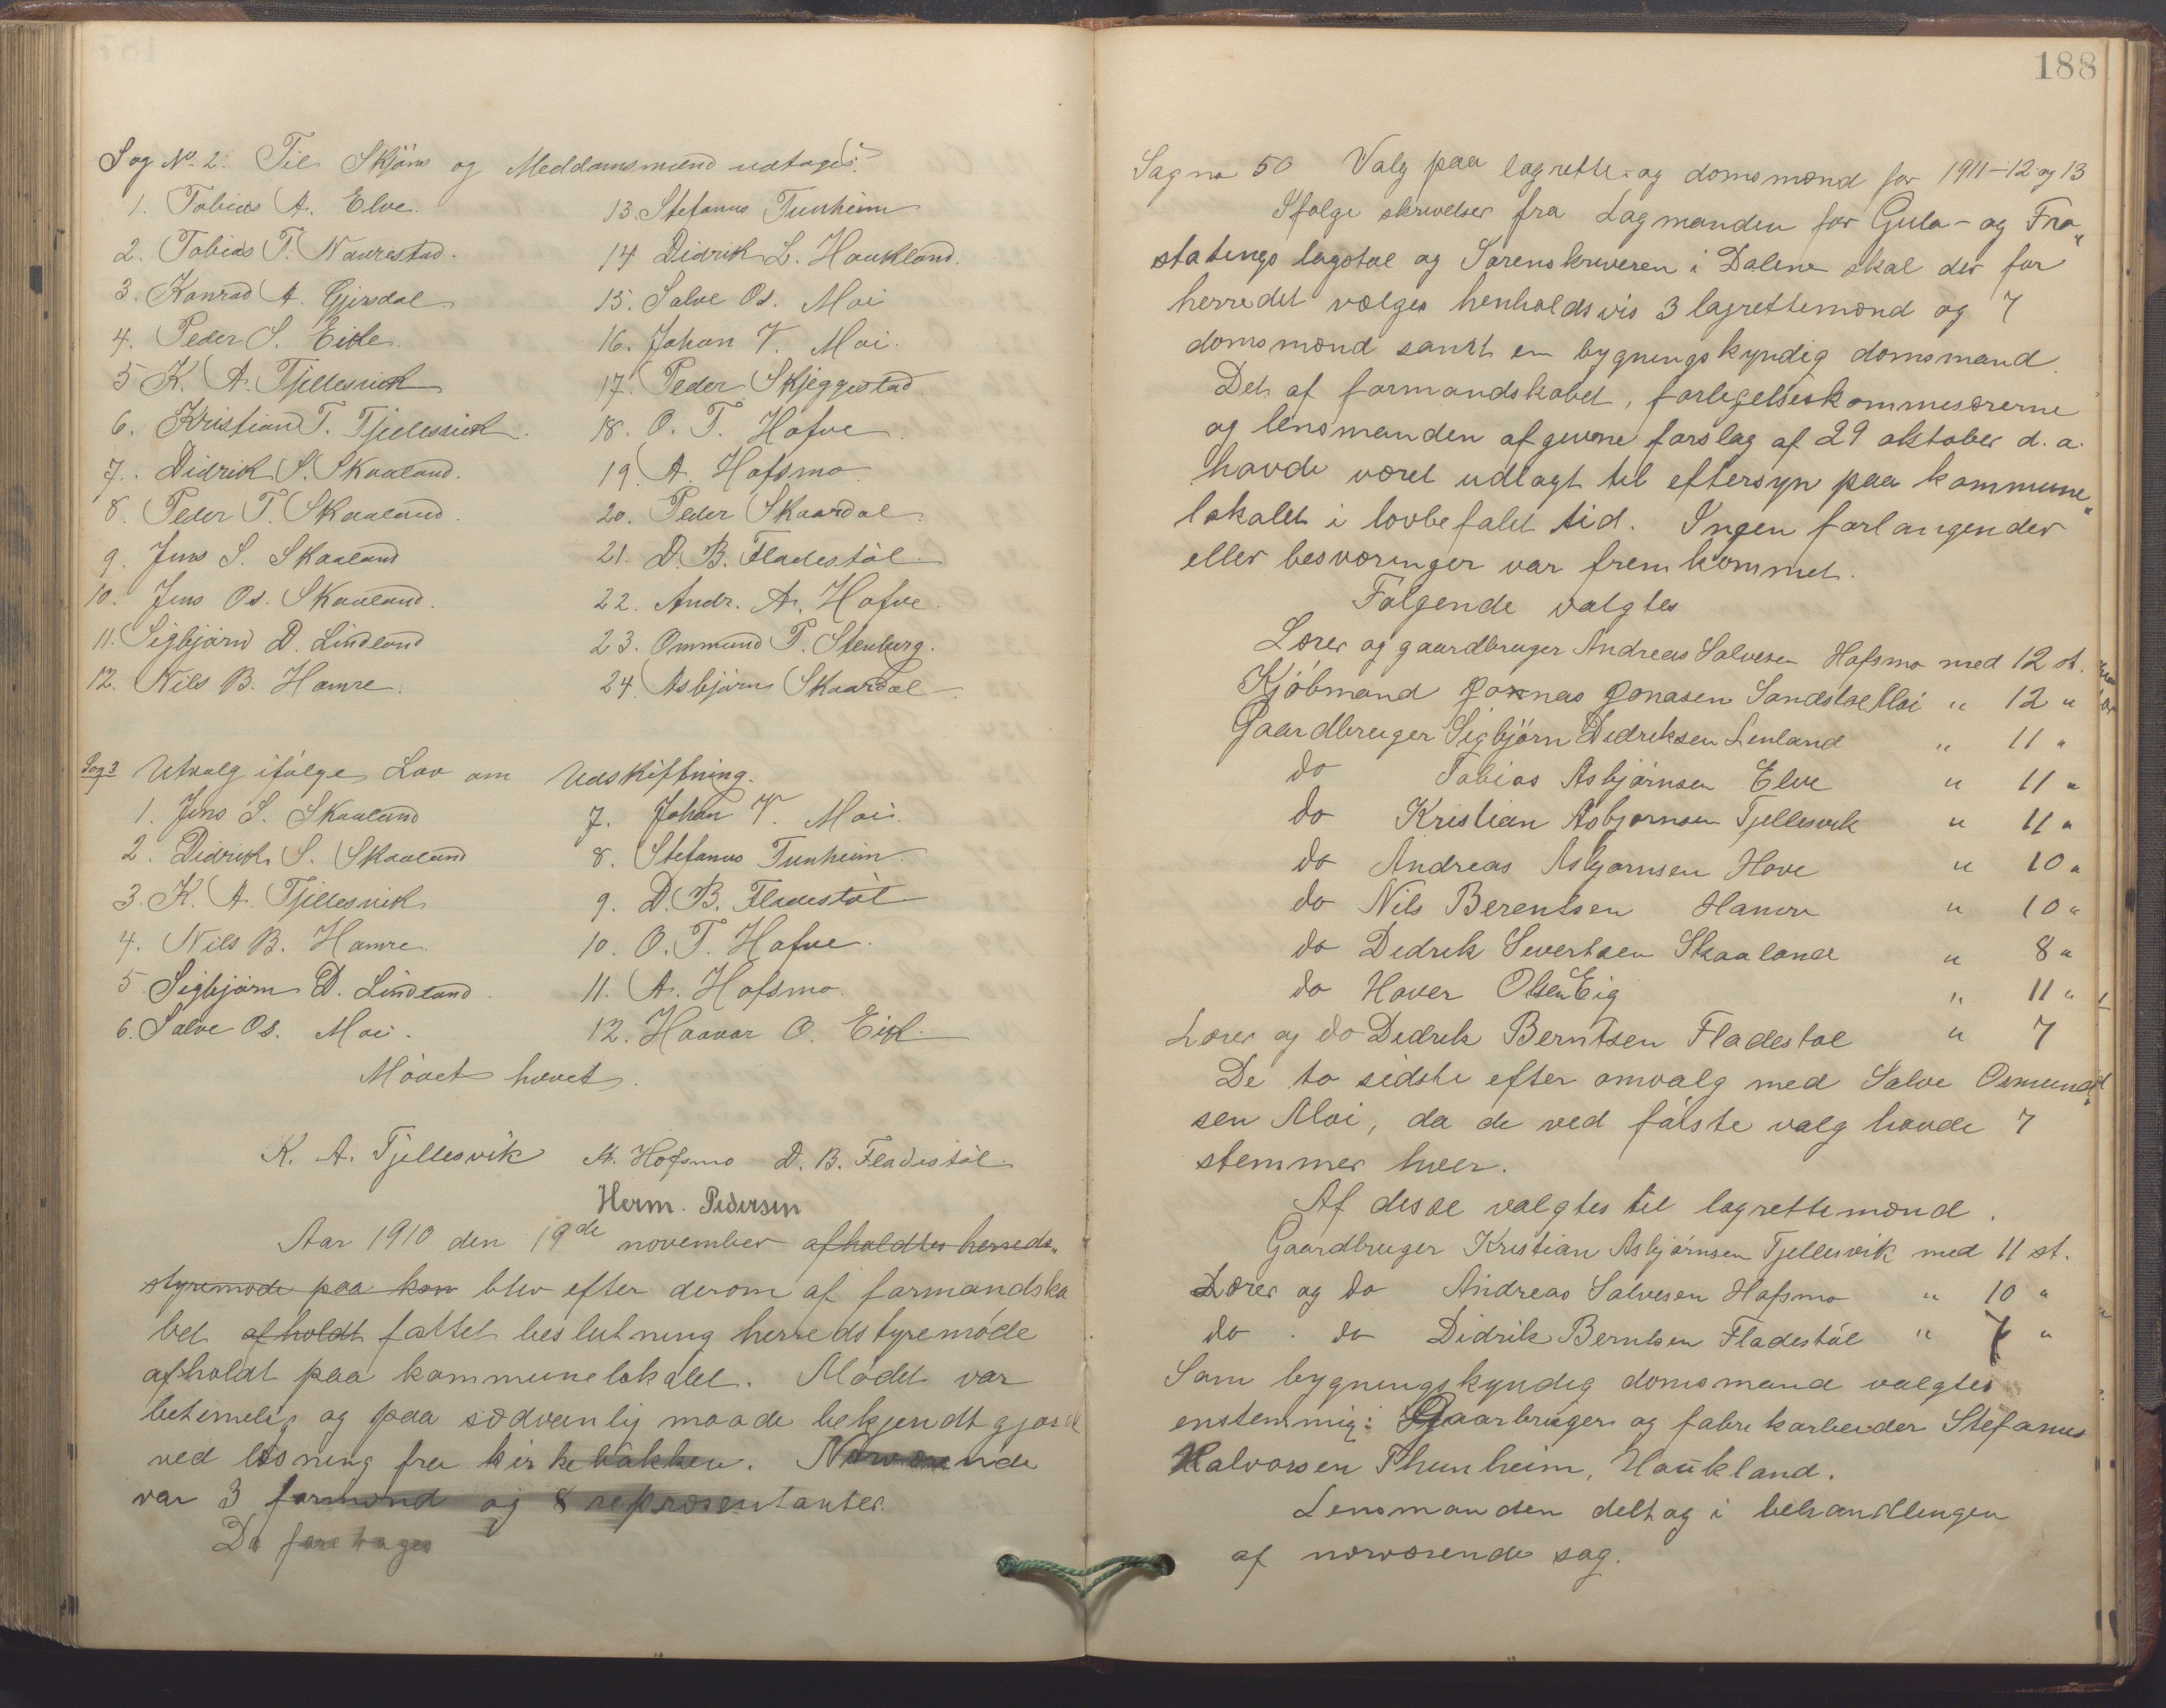 Sag No. 2. Til Skjøns og Meddomsmænd udtoges:
1. Tobias A. Elve.
2. Tobias T. Naurestad.
3. Konrad A. Gjersdal
4. Peder S. Eike.
5 K. A. Tjellesvick
6. Kristian T. Tjellesvick.
7. Didrik S. Skaaland.
8. Peder T. Skaaland.
9. Jens S. Skaaland
10. Jens Os. Skaaland.
11. Sigbjørn D. Lindland
12. Nils B. Hamre.
13. Stefanus Tunheim
14 Didrik L. Haukland.
15. Salve Os. Moi
16. Johan V. Moi.
17. Peder Skjeggestad
18. O. T. Hafve.
19. A. Hofsmo.
20. Peder Skaardal.
21. D. B. Fladestøl.
22. Andr. A. Hofve.
23. Ommund P. Stenberg.
24. Asbjørn Skaardal.
Sag 3 Utvalg ifølge Lov om Udskiftning.
1. Jens S. Skaaland
2. Didrik S. Skaaland
3. K. A. Tjellesvick
4. Nils B. Hamre.
5. Sigbjørn D. Lindland.
6. Salve Os. Moi.
7. Johan V. Moi.
8. Stefanus Tunheim.
9. D. B. Fladestøl
10. O. T. Hafve.
11. A. Hofsmo.
12. Haavar O. Eik.
Møvet hævet.
K. A. Tjellesvik A. Hofsmo D. B. Fladestøl
Herm. Pedersen
Aar 1910 den 19de november afholdtes herreds„
styremøde paa kom blev efter derom af formandska
bet afholdt fattet beslutning herredstyremøde
afholdt paa kommunelokalet. Mødet var
betimelig og paa sædvanlig maade bekjendtgjord
ved læsning fra kirkebakken. Nærværende
var 3 formænd og 8 repræsentanter.
Da foretages
188
Sag no 50 Valg paa lagrette- og domsmænd for 1911-12 og 13
Ifølge skrivelser fra Lagmanden for Gula- og Fro„
statings lagstol og Sorenskriveren i Dalene skal der for
herredet vælges henholdsvis 3 lagrettemænd og 7
domsmænd samt en bygningskyndig domsmand.
Det af formandskabet, forligelseskommisærerne
og lensmanden afgivne forslag af 29 oktober d. a.
havde været udlagt til eftersyn paa kommune„
lokalet i lovbefalet tid. Ingen forlangender
eller besværinger var fremkommet.
Følgende valgtes
Lærer og gaardbruger Andreas Salvesen Hofsmo med 12 st.
Kjøbmand Jonas Jonasen Sandstøl Moi " 12 "
Gaardbruger Sigbjørn Didriksen Linland " 11 "
do Tobias Asbjørnsen Elve " 11 "
do Kristian Asbjørnsen Tjellesvik " 11 "
do Andreas Asbjørnsen Hove " 10 "
do Nils Berentsen Hamre " 10 "
do Didrik Sivertsen Skaaland " 8 "
do Hover Olsen Eig " 11 "
Lærer og do Didrik Berntsen Fladestøl " 7
De to sidste efter omvalg med Salve Osmund„
sen Moi, da de ved første valg havde 7
stemmer hver.
Af disse valgtes til lagrettemænd.
Gaardbruger Kristian Asbjørnsen Tjellesvik med 11 st.
Lærer og do Andreas Salvesen Hofsmo " 10 "
do . do Didrik Berntsen Fladestøl " 7 "
Som bygningskyndig domsmand valgtes
enstemmig: Gaarbruger og fabrikarbeider Stefanus
Halvorsen Thunheim, Haukland.
Lensmanden deltog i behandlingen
af nærværende sag.